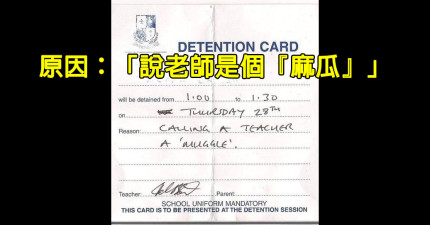 DETENTION CARD
原因：「說老師是個『麻瓜』」
will be detained from 1.00 to 1.30
on THURSDAY 28TH
Reason: CALLING A TEACHER
A 'MUGGLE'.
Teacher: Parent:
SCHOOL UNIFORM MANDATORY
THIS CARD IS TO BE PRESENTED AT THE DETENTION SESSION